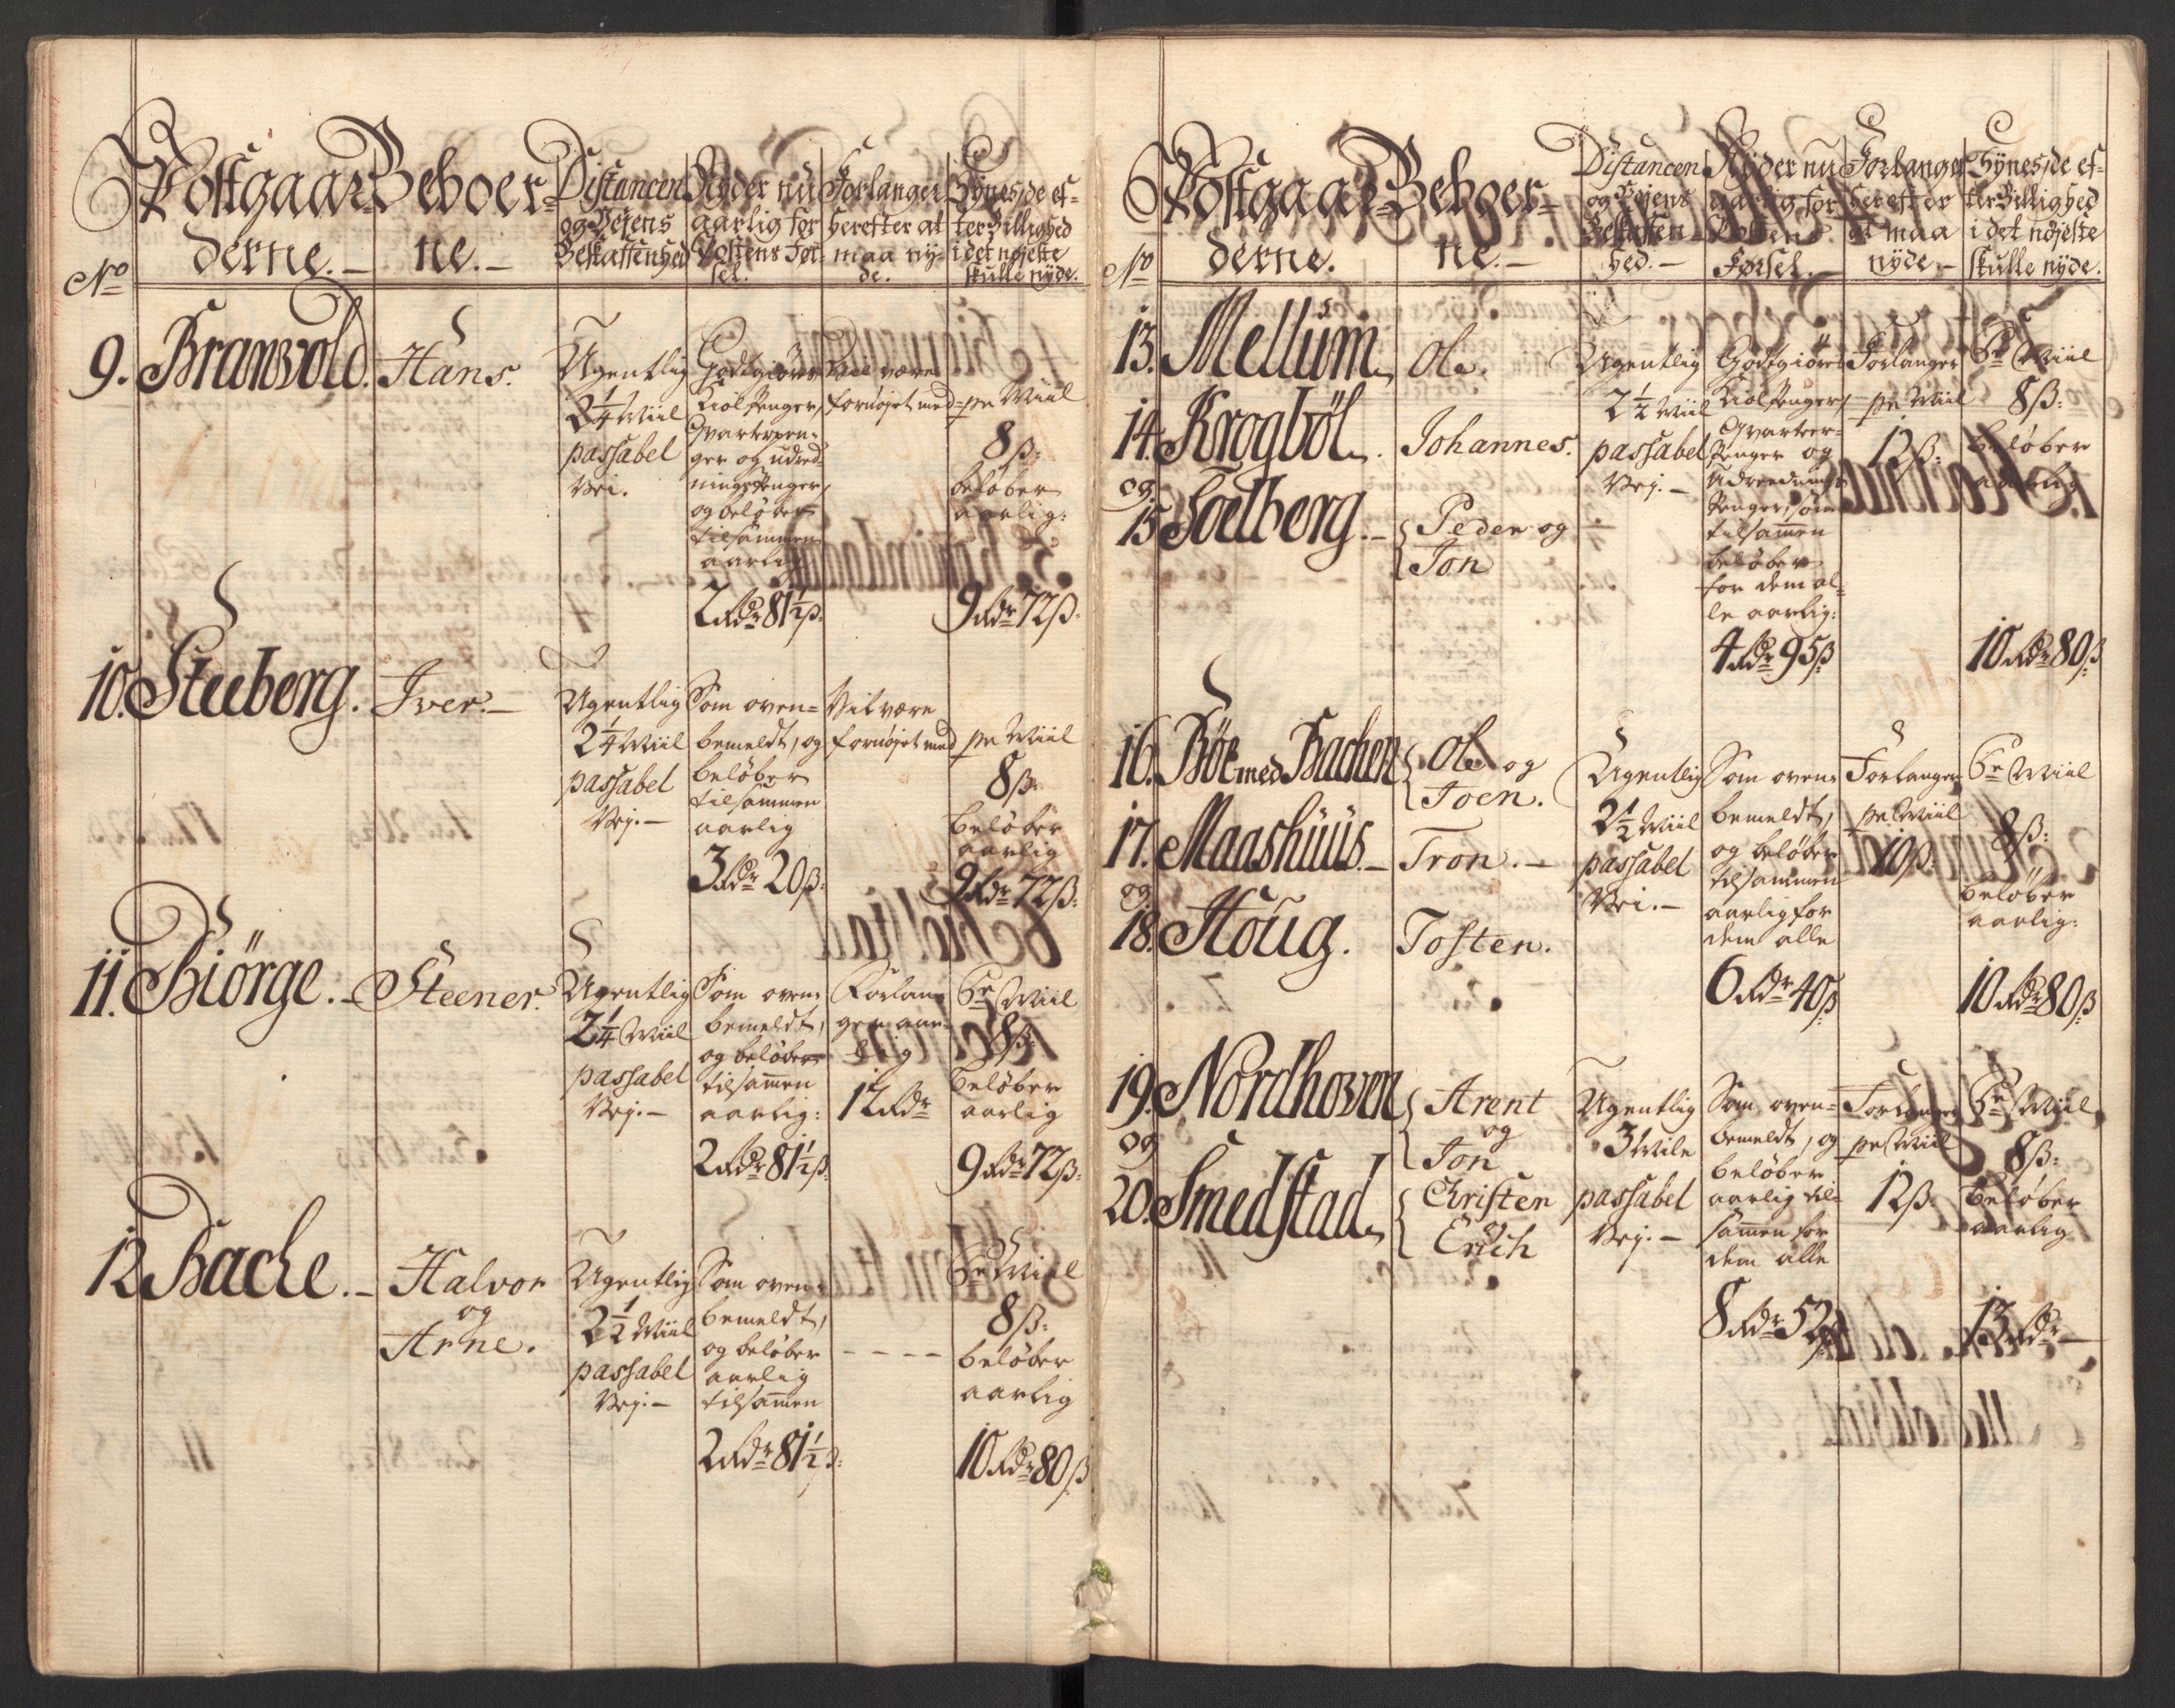 No
Postgaar=
derne. –
Beboer=
ne. –
Distancen
og Vejens
Beskaffenhed
Nyder nu
aarlig for
Postens Før-
sel.
Forlanger
herefter at
maa ny-
de.
Synes de ef-
ter Billighed
i det nøjeste
skulle nyde.
9. Branvold.
Hans.
Ugentlig
2 1/4 Miil
passabel
Vei.
Godtgiøres
Kiøl Penger,
Qvarterpen-
ger og udred-
nings Penger,
og beløber
tilsammen
aarlig
2 Rdr 81 1/2 ß.
Vil være
fornøjet med
pr Miil
8 ß:
beløber
aarlig:
9 Rdr 72 ß.
10. Steeberg.
Iver. –
Ugentlig
2 1/4 Miil
passabel
Vej. –
Som oven=
bemeldt, og
beløber
tilsammen
aarlig
3 Rdr 20 ß:
Vil være
fornøjet med
pr Miil
8 ß:
beløber
aarlig
9 Rdr 72 ß:
11. Biörge. –
Steener.
Ugentlig
2 1/4 Miil
passabel
Vej. –
Som oven=
bemeldt,
og beløber
tilsamen
aarlig:
2 Rdr 81 1/2 ß.
Forlan-
ger aar-
lig
12 Rdr
Pr Miil
8 ß:
beløber
aarlig
9 Rdr 72 ß:
12. Bache. –
Halvor
og
Arne.
Ugentlig
2 1/2 Miil
passabel
Vej. –
Som oven=
bemeldt,
og beløber
aarlig
tilsamen
2 Rdr 81 1/2 ß:
– – – –
Pr Miil
8 ß:
beløber
aarlig
10 Rdr 80 ß
No
Postgaar=
derne.
Beboer=
ne. –
Distancen
og Vejens
Beskaffen-
hed. –
Nyder nu
aarlig for
Postens
Førsel. –
Forlanger
herefter
at maa
nyde –
Synes de ef-
ter Billighed
i det nøjeste
skulle nyde.
13. Mellum
Ole.
14. Krogböl.
Johannes.
og
15. Soelberg. –
Peder og
Jon
Ugentlig
2 1/2 Miil
passabel
Vej. –
Godtgiøres
Kiøl Penger,
Qvarteer-
Penger og
Udrednings
Penger, som
tilsamen
beløber
for dem al-
le aarlig:
4 Rdr 95 ß
Forlanger
pr Miil
12 ß:
Pr Miil
8 ß:
beløber
aarlig
10 Rdr 80 ß
16. Böe med Bachen
Ole og
Joen.
17. Maashüüs. –
Tron. –
og
18. Houg.
Tosten.
Ugentlig
2 1/2 Miil
passabel
Vei. –
Som oven=
bemeldt,
og beløber
tilsammen
aarlig for
dem alle
6 Rdr 40 ß
Forlanger
pr Miil
10 ß:
Pr Miil
8 ß:
beløber
aarlig:
10 Rdr 80 ß
19. Nordhoven
Arent
og
Jon
og
20. Smedstad
Christen
og
Erich
Ugentlig
3 Mile
passabel
Vej. –
Som oven=
bemeldt, og
beløber
aarlig til-
samen for
dem alle
8 Rdr 52 ß
Forlanger
pr Miil
12 ß
Pr Miil
8 ß:
beløber
aarlig
13 Rdr –